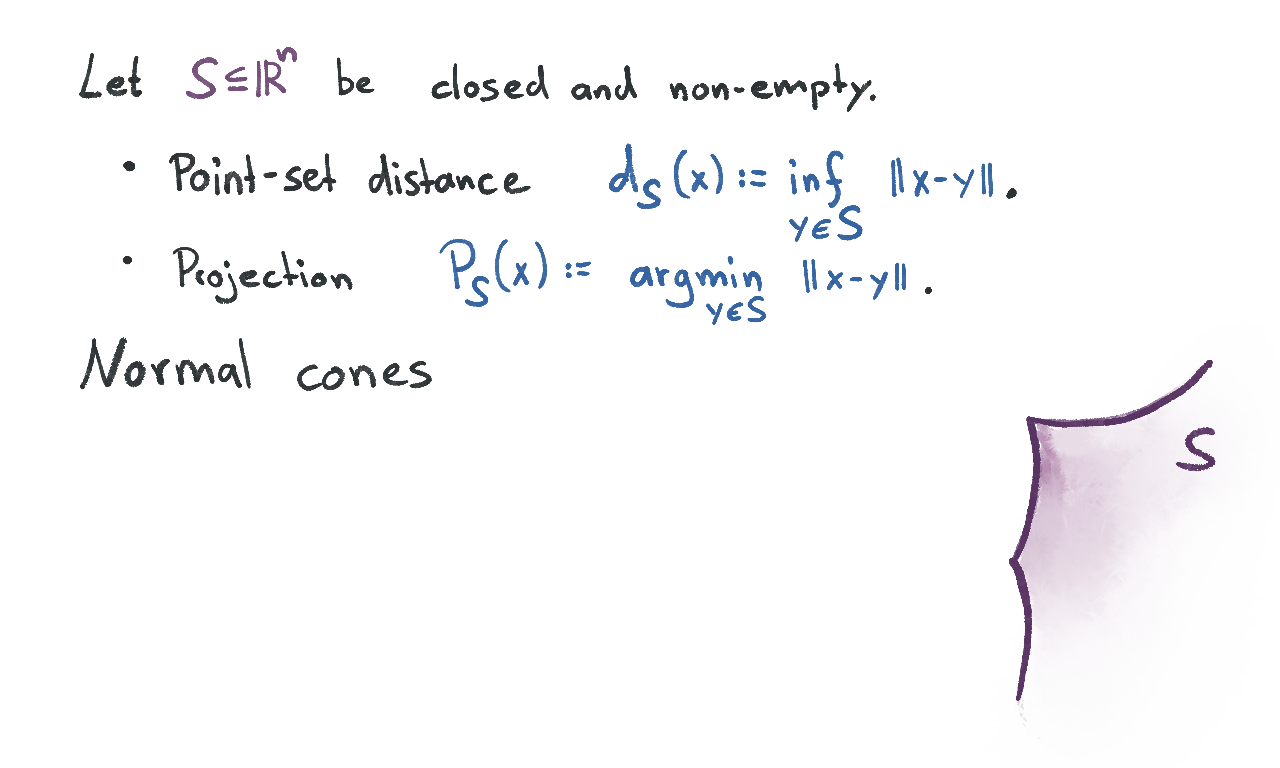 Let S⊆ℝⁿ be closed and non-empty.
• Point-set distance d_S(x) := inf_{y∈S} ‖x-y‖.
• Projection P_S(x) := argmin_{y∈S} ‖x-y‖.
Normal cones
S